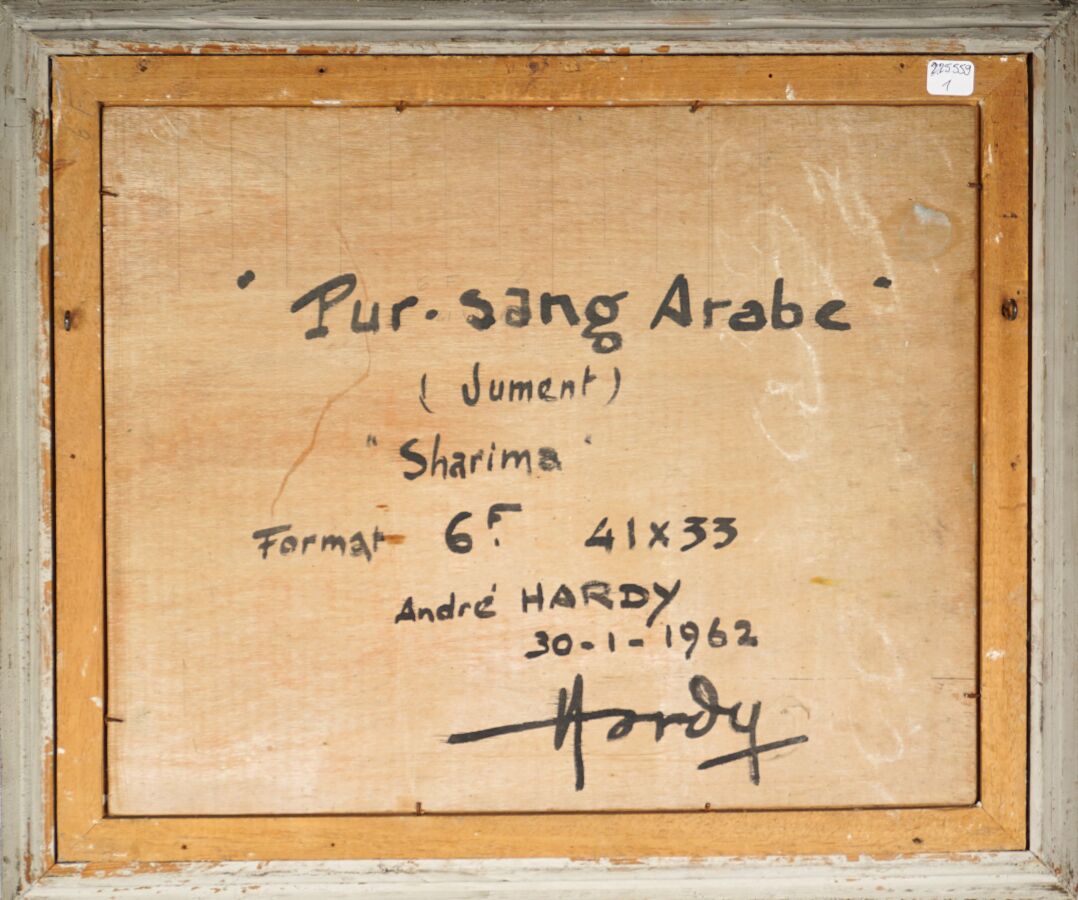 225559
1
" Pur-sang Arabe "
( Jument )
" Sharima "
Format 6F. 41x33
André HARDY
30-1-1962
Hardy